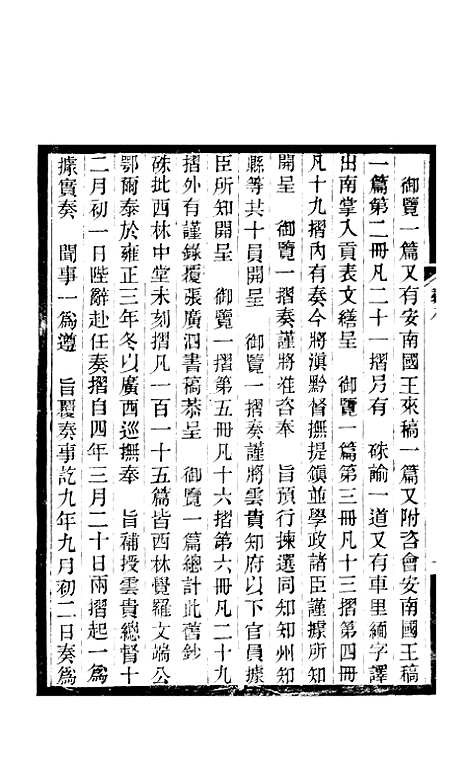 御覽一篇又有安南國王來稿一篇又附咨會安南國王稿
一篇第二冊凡二十一摺另有　硃諭一道又有車里緬字譯
出南掌入貢表文繕呈　御覽一篇第三冊凡十三摺第四冊
凡十九摺內有奏今將滇黔督撫提鎮並學政諸臣謹據所知
開呈　御覽一摺奏謹將准咨奉　旨預行揀選同知知州知
縣等共十員開呈　御覽一摺奏謹將雲貴知府以下官員據
臣所知開呈　御覽一摺第五冊凡十六摺第六冊凡二十九
摺外有謹錄覆張廣泗書稿恭呈　御覽一篇總計此舊鈔
硃批西林中堂未刻摺凡一百一十五篇皆西林覺羅文端公
鄂爾泰於雍正三年冬以廣西巡撫奉　旨補授雲貴總督十
二月初一日陛辭赴任奏摺自四年三月二十日兩摺起一為
據實奏　聞事一為遵　旨覆奏事訖九年九月初二日奏為